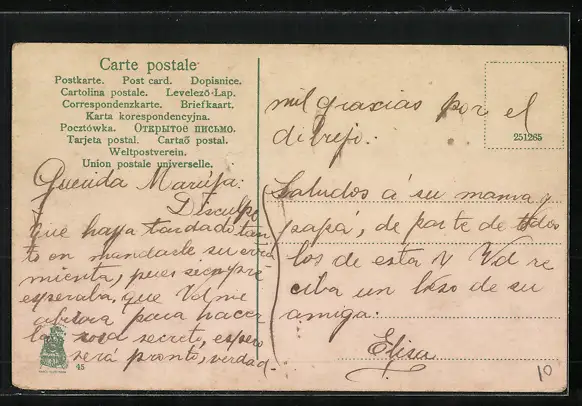 Carte postale
Postkarte. Post card. Dopisnice.
Cartolina postale. Levelező-Lap.
Correspondenzkarte. Briefkaart.
Karta korespondencyjna.
Pocztówka. Открытое письмо.
Tarjeta postal. Cartaõ postal.
Weltpostverein.
Union postale universelle.
Querida
Disculpe
que haya tardado tan
to en mandarle su
pues siempre
esperaba, que Vd me
para hacer
la secreto, espero
será pronto, verdad-
45
mil gracias por el
dibujo.
251265
Saludos á su mama y
papá, de parte de todos
los de esta y Vd re
ciba un beso de su
amiga.
Elisa
10